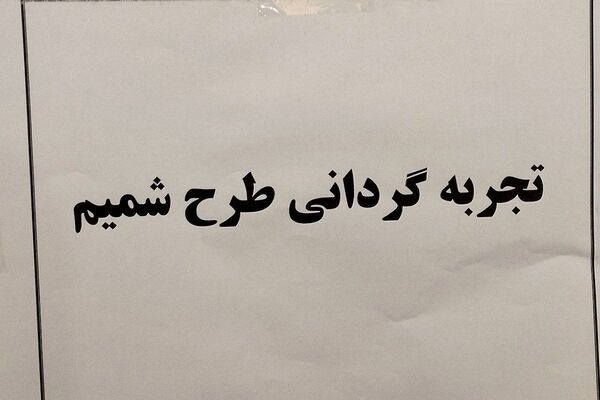 تجربه گردانی طرح شمیم